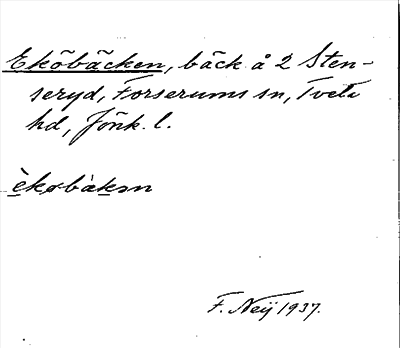 Eköbäcken, bäck å 2 Sten-
seryd, Forserums sn, Tveta
hd, Jönk. l.
F. Neij 1937.